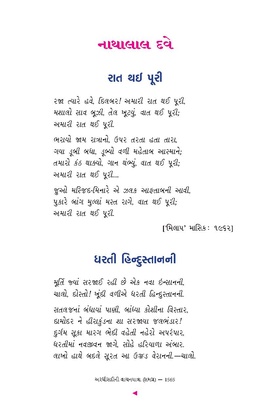 નાથાલાલ દવે
રાત થઈ પૂરી
રજા ત્યારે હવે, દિલબર! અમારી રાત થઈ પૂરી.
મશાલો સાવ બૂઝી, તેલ ખૂટ્યું, વાત થઈ પૂરી;
અમારી રાત થઈ પૂરી.
ભરાયો જામ રાત્રીનો, ઉપર તરતા હતા તારા,
ગયા ડૂબી બધા, ડૂબ્યો વળી મહેતાબ આસ્માને;
તમારો કંઠ થાક્યો, ગાન થંભ્યું, વાત થઈ પૂરી;
અમારી રાત થઈ પૂરી...
જુઓ મસ્જિદ-મિનારે એ ઝલક આફતાબની આવી,
પુકારે બાંગ મુલ્લાં મસ્ત રાગે, વાત થઈ પૂરી;
અમારી રાત થઈ પૂરી.
['મિલાપ' માસિક: ૧૯૬૨]
ધરતી હિન્દુસ્તાનની
મૂર્તિ જ્યાં સરજાઈ રહી છે એક નવા ઇન્સાનની,
ચાલો, દોસ્તો! ખૂંદી વળીએ ધરતી હિન્દુસ્તાનની.
સતલજનાં બંધાયાં પાણી, બાંધ્યા કોશીના વિસ્તાર,
દામોદર ને હીરાકુંડના શા સરજાવા જલભંડાર!
દુર્ગમ સૂકા મારગ ભેદી વહેતી નહેરો અપરંપાર,
ધરતીમાં નવજીવન જાગે, સોહે હરિયાળા અંબાર.
લાખો હાથે બદલે સૂરત આ ઉજ્જડ વેરાનની.—ચાલો.